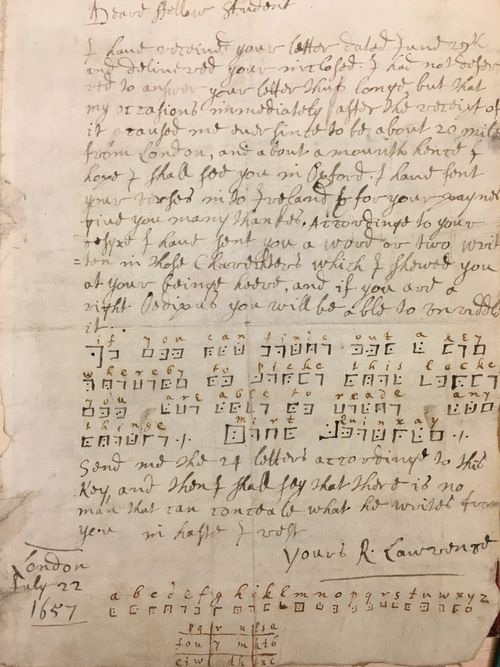 Deare ffellow Student
I have received your letter dated June 29th
and delivered your inclosed. I had not defer
red to answer your letter thus longe, but that
my occasions immediately after the receipt of
it caused me ever since to be about 20 miles
from London, and about a mounth hence I
hope I shall see you in Oxford. I have sent
your verses into Ireland & for your paynes
give you many thankes. Accordinge to your
desyre I have sent you a word or two writ
=ten in those Charechters which I shewed you
at your beinge heere, and if you are a
right Oedipus you will be able to unriddle
it.
if you can finde out a key
whereby to picke this locke
you are able to reade any
thinge mirt quinxay
Send me the 24 letters accordinge to this
Key, and then I shall say that there is no
man that can conceale what he writes from
you in haste I rest
yours R. Lawrence
London
July 22
1657
a b c d e f g h i k l m n o p q r s t u w x y z